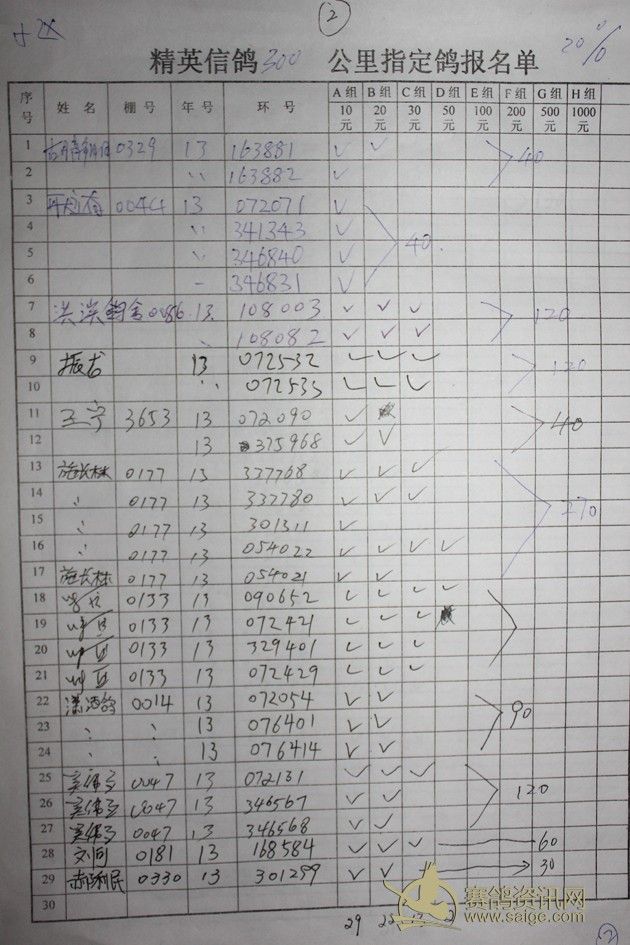 ②
精英信鸽300 公里指定鸽报名单 20%
序号 姓名 棚号 年号 环号 A组 10元 B组 20元 C组 30元 D组 50元 E组 100元 F组 200元 G组 500元 H组 1000元
1 0329 13 163881 ✓ ✓ 40
2 〃 163882 ✓
3 0044 13 072071 ✓
4 〃 341343 ✓ 40
5 〃 346840 ✓
6 346831 ✓
7 13 108003 ✓ ✓ ✓ 120
8 108082 ✓ ✓ ✓
9 振龙 13 072532 ✓ ✓ ✓ 120
10 〃 072535 ✓ ✓ ✓
11 王宁 3653 13 072090 ✓ 40
12 13 375968 ✓ ✓
13 施长林 0177 13 337768 ✓ ✓ ✓
14 〃 0177 13 337780 ✓ ✓ ✓ 270
15 〃 0177 13 301311 ✓
16 〃 0177 13 054022 ✓ ✓ ✓ ✓
17 施长林 0177 13 054021 ✓ ✓
18 0133 13 090652 ✓ ✓ ✓ ✓
19 0133 13 072421 ✓ ✓ ✓
20 0133 13 329401 ✓ ✓ ✓
21 0133 13 072429 ✓ ✓ ✓
22 0014 13 072054 ✓ ✓ 90
23 〃 〃 13 076401 ✓ ✓
24 〃 〃 13 076414 ✓ ✓
25 0047 13 072131 ✓ ✓ ✓ 120
26 0047 13 346567 ✓ ✓
27 0047 13 346568 ✓ ✓
28 刘同 0181 13 168584 ✓ ✓ ✓ 60
29 郝利民 0330 13 301299 ✓ ✓ 30
30
29 25 2
赛鸽资讯网
www.saige.com
②